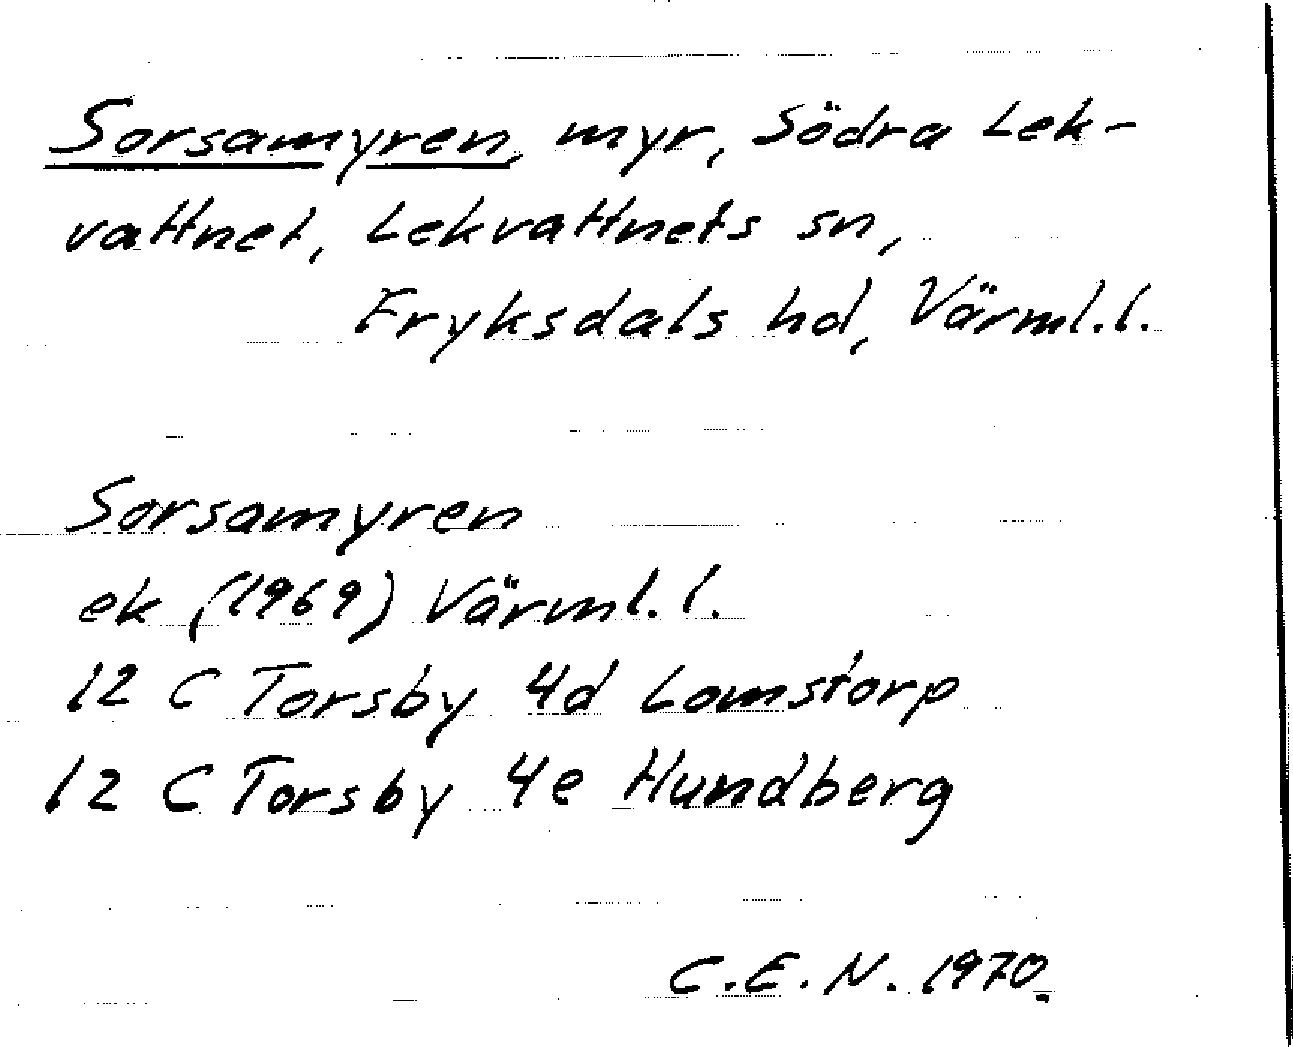 Sorsamyren, myr, Södra Lek-
vattnet, Lekvattnets sn,
Fryksdals hd, Värml.l.
Sorsamyren
ek (1969) Värml.l.
12 C Torsby 4d Lomstorp
12 C Torsby 4e Hundberg
C.E.N. 1970.